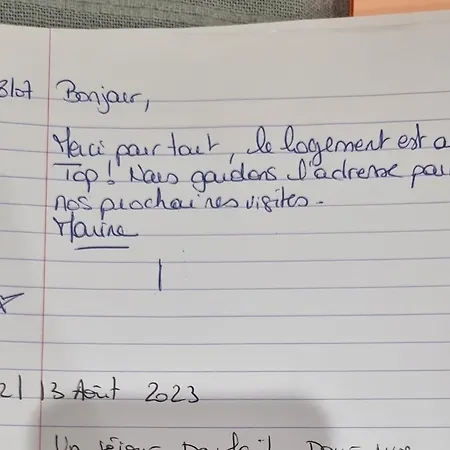 3/07 Bonjour,
Merci pour tout, le logement est a
Top! Nous gardons l'adresse pou
nos prochaines visites.
Marine
2/ 13 Août 2023
Un séjour parfait